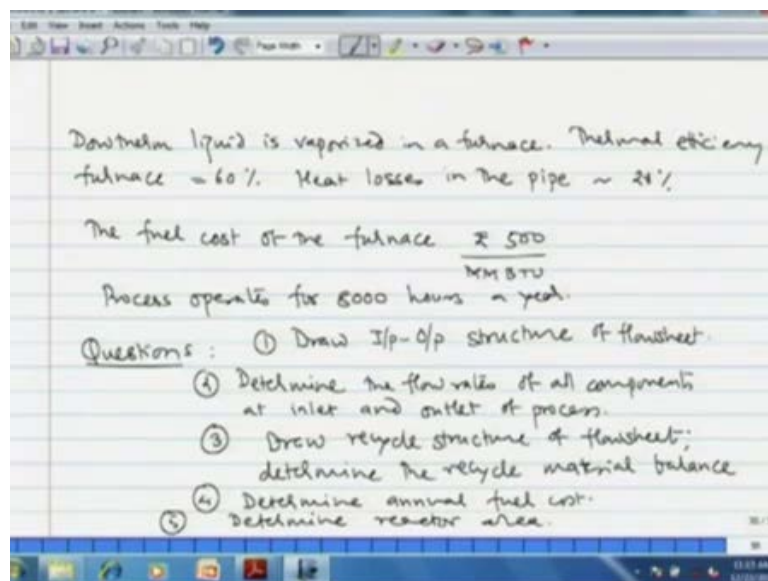 Edit View Insert Actions Tools Help
Page Width
Dowtherm liquid is vaporized in a furnace. Thermal efficiency
furnace = 60%. Heat losses in the pipe ~
The fuel cost of the furnace ₹ 500
MMBTU
Process operates for 8000 hours a year.
Questions: ① Draw I/p-O/p structure of flowsheet.
② Determine the flow rates of all components
at inlet and outlet of process.
③ Draw recycle structure of flowsheet;
determine the recycle material balance
④ Determine annual fuel cost.
⑤ Determine reactor area.